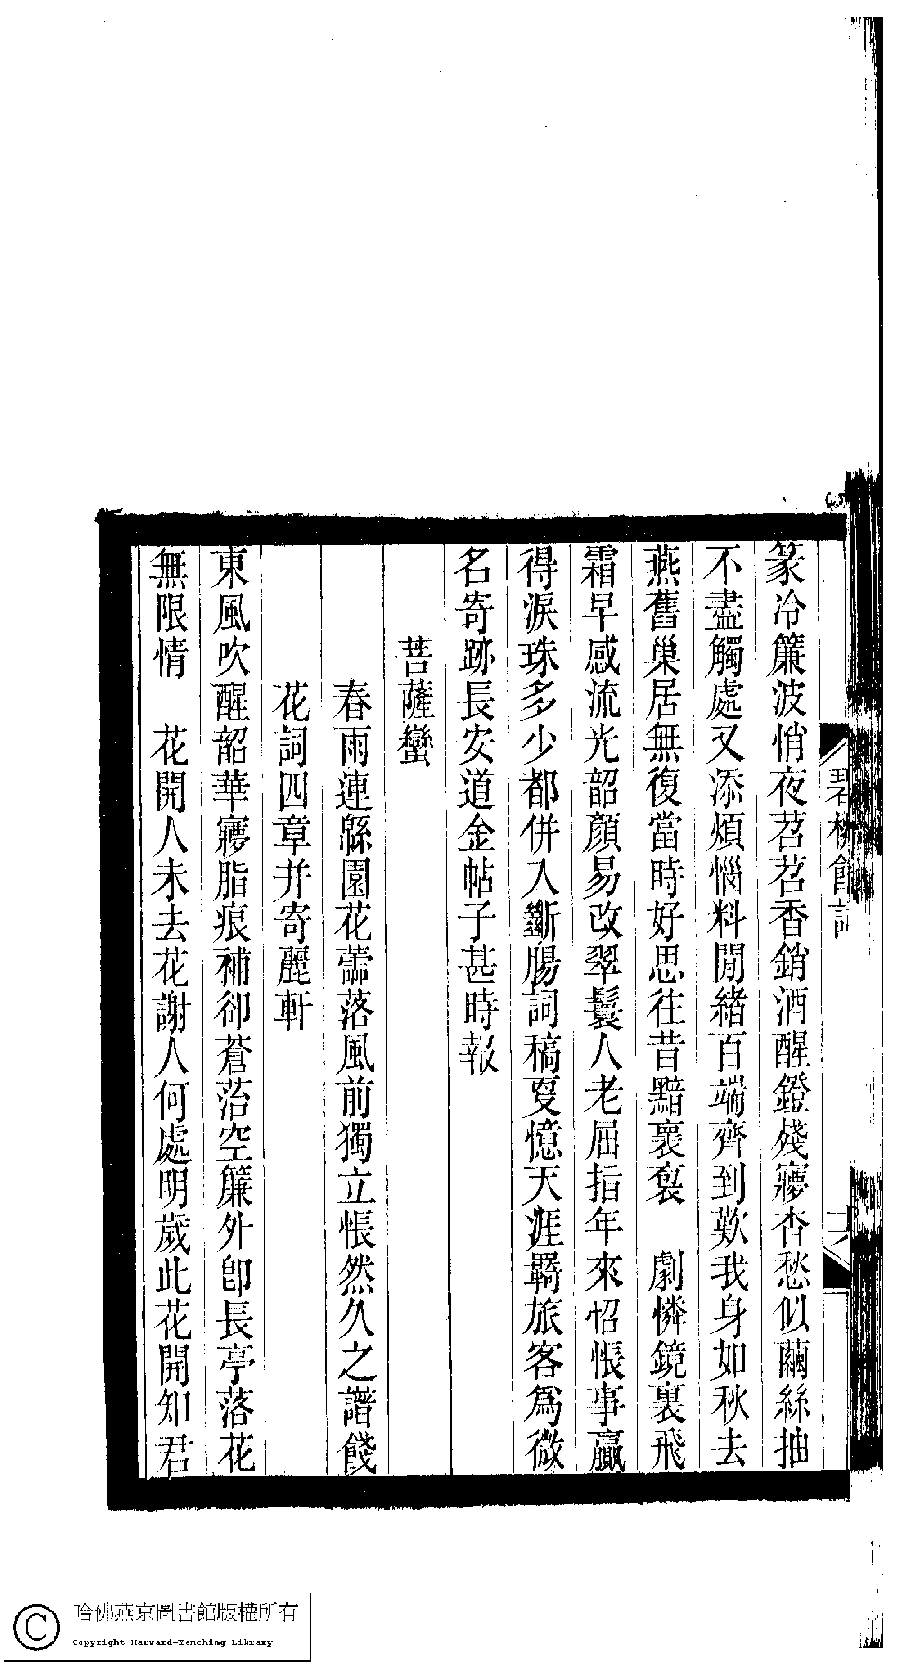 篆冷簾波悄夜苕苕香銷酒醒鐙殘寢杳愁似繭絲抽
不盡觸處又添煩惱料閒緒百端齊到歎我身如秋去
燕舊巢居無復當時好思往昔黯裏裊　劇憐鏡裏飛
霜早感流光韶顏易改翠鬟人老屈指年來怊悵事贏
得淚珠多少都併入斷腸詞稿叟憶天涯羈旅客爲微
名寄跡長安道金帖子甚時報
菩薩蠻
春雨連緜園花虀落風前獨立悵然久之譜餞
花詞四章幷寄麗軒
東風吹醒韶華寢脂痕補卻蒼苔空簾外卽長亭落花
無限情　花開人未去花謝人何處明歲此花開知君
碧桃館詞
六
哈佛燕京圖書館版權所有
Copyright Harvard-Yenching Library